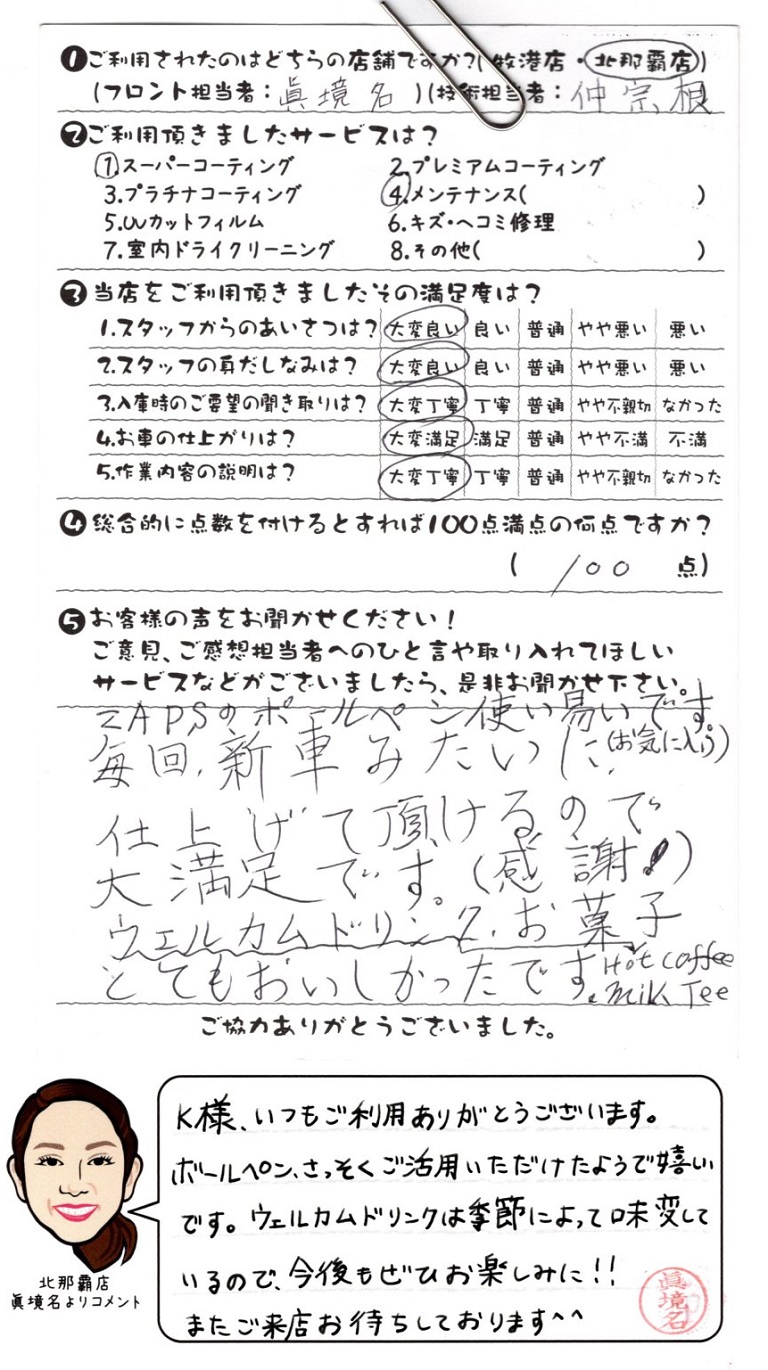 ❶ご利用されたのはどちらの店舗ですか?(牧港店・北那覇店)
(フロント担当者:眞境名)(技術担当者:仲宗根
❷ご利用頂きましたサービスは?
1.スーパーコーティング 2.プレミアムコーティング
3.プラチナコーティング 4.メンテナンス( )
5.UVカットフィルム 6.キズ・ヘコミ修理
7.室内ドライクリーニング 8.その他( )
❸当店をご利用頂きましたその満足度は?
1.スタッフからのあいさつは? 大変良い 良い 普通 やや悪い 悪い
2.スタッフの身だしなみは? 大変良い 良い 普通 やや悪い 悪い
3.入庫時のご要望の聞き取りは? 大変丁寧 丁寧 普通 やや不親切 なかった
4.お車の仕上がりは? 大変満足 満足 普通 やや不満 不満
5.作業内容の説明は? 大変丁寧 丁寧 普通 やや不親切 なかった
❹総合的に点数を付けるとすれば100点満点の何点ですか?
( 100 点)
❺お客様の声をお聞かせください!
ご意見、ご感想担当者へのひと言や取り入れてほしい
サービスなどがございましたら、是非お聞かせ下さい。
ZAPSのボールペン使い易いです。
(お気に入り)
毎回、新車みたいに、
仕上げて頂けるので
大満足です。(感謝!)
ウェルカムドリンク、お菓子
とてもおいしかったです。
Hot coffee
Milk Tee
ご協力ありがとうございました。
K様、いつもご利用ありがとうございます。
ボールペン、さっそくご活用いただけたようで嬉しい
です。ウェルカムドリンクは季節によって味変して
いるので、今後もぜひお楽しみに!!
またご来店お待ちしております^^
眞境名
北那覇店
眞境名よりコメント